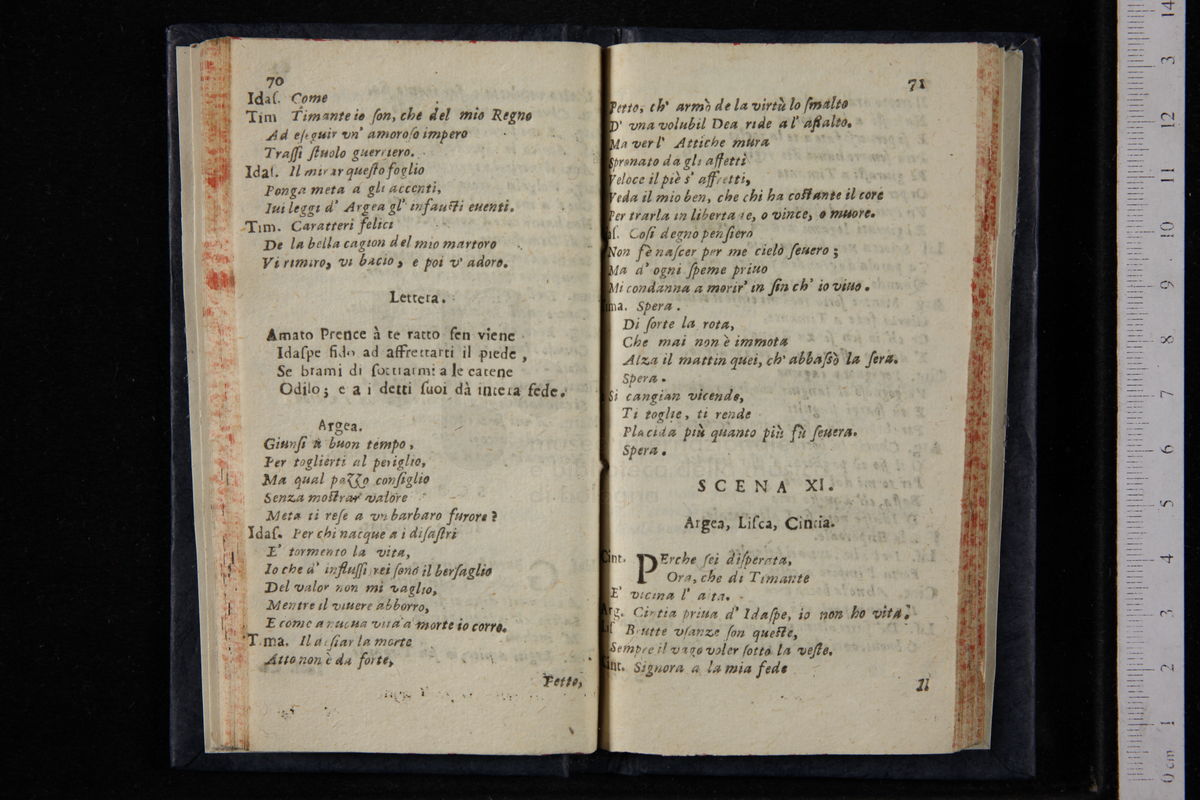 70
Idaſ. Come
Tim Timante io ſon, che del mio Regno
Ad eſeguir vn' amoroſo impero
Traſſi ſtuolo guerriero.
Idaſ. Il mirar queſto foglio
Ponga meta a gli accenti,
Iui leggi d' Argea gl' infauſti euenti.
Tim. Caratteri felici
De la bella cagion del mio martoro
Vi rimiro, vi bacio, e poi v' adoro.
Lettera.
Amato Prence à te ratto ſen viene
Idaſpe fido ad affrettarti il piede,
Se brami di ſottrarmi a le catene
Odilo; e a i detti ſuoi dà intera fede.
Argea.
Giunſi à buon tempo,
Per toglierti al periglio,
Ma qual pazzo conſiglio
Senza moſtrar valore
Meta ti reſe a vn barbaro furore?
Idaſ. Per chi nacque a i diſaſtri
E' tormento la vita,
Io che d' influſſi rei ſono il berſaglio
Del valor non mi vaglio,
Mentre il viuere abborro,
E come a nuoua vita a morte io corro.
Tima. Il laſciar la morte
Atto non è da forte,
Petto,
71
Petto, ch' armò de la virtù lo ſmalto
D' vna volubil Dea ride a l' aſſalto.
Ma ver l' Attiche mura
Spronato da gli affetti
Veloce il piè s' affretti,
Veda il mio ben, che chi ha coſtante il core
Per trarla in libertate, o vince, o muore.
Idaſ. Coſi degno penſiero
Non fè naſcer per me cielo ſeuero;
Ma d' ogni ſpeme priuo
Mi condanna a morir' in ſin ch' io viuo.
Tima. Spera.
Di ſorte la rota,
Che mai non è immota
Alza il mattin quei, ch' abbaſsò la ſera.
Spera.
Si cangian vicende,
Ti toglie, ti rende
Placida più quanto più fù ſeuera.
Spera.
SCENA XI.
Argea, Liſca, Cintia.
Cint. PErche ſei diſperata,
Ora, che di Timante
E' vicina l' aita.
Arg. Cintia priua d' Idaſpe, io non ho vita.
Liſ Brutte vſanze ſon queſte,
Sempre il vago voler ſotto la veſte.
Cint. Signora a la mia fede
Il